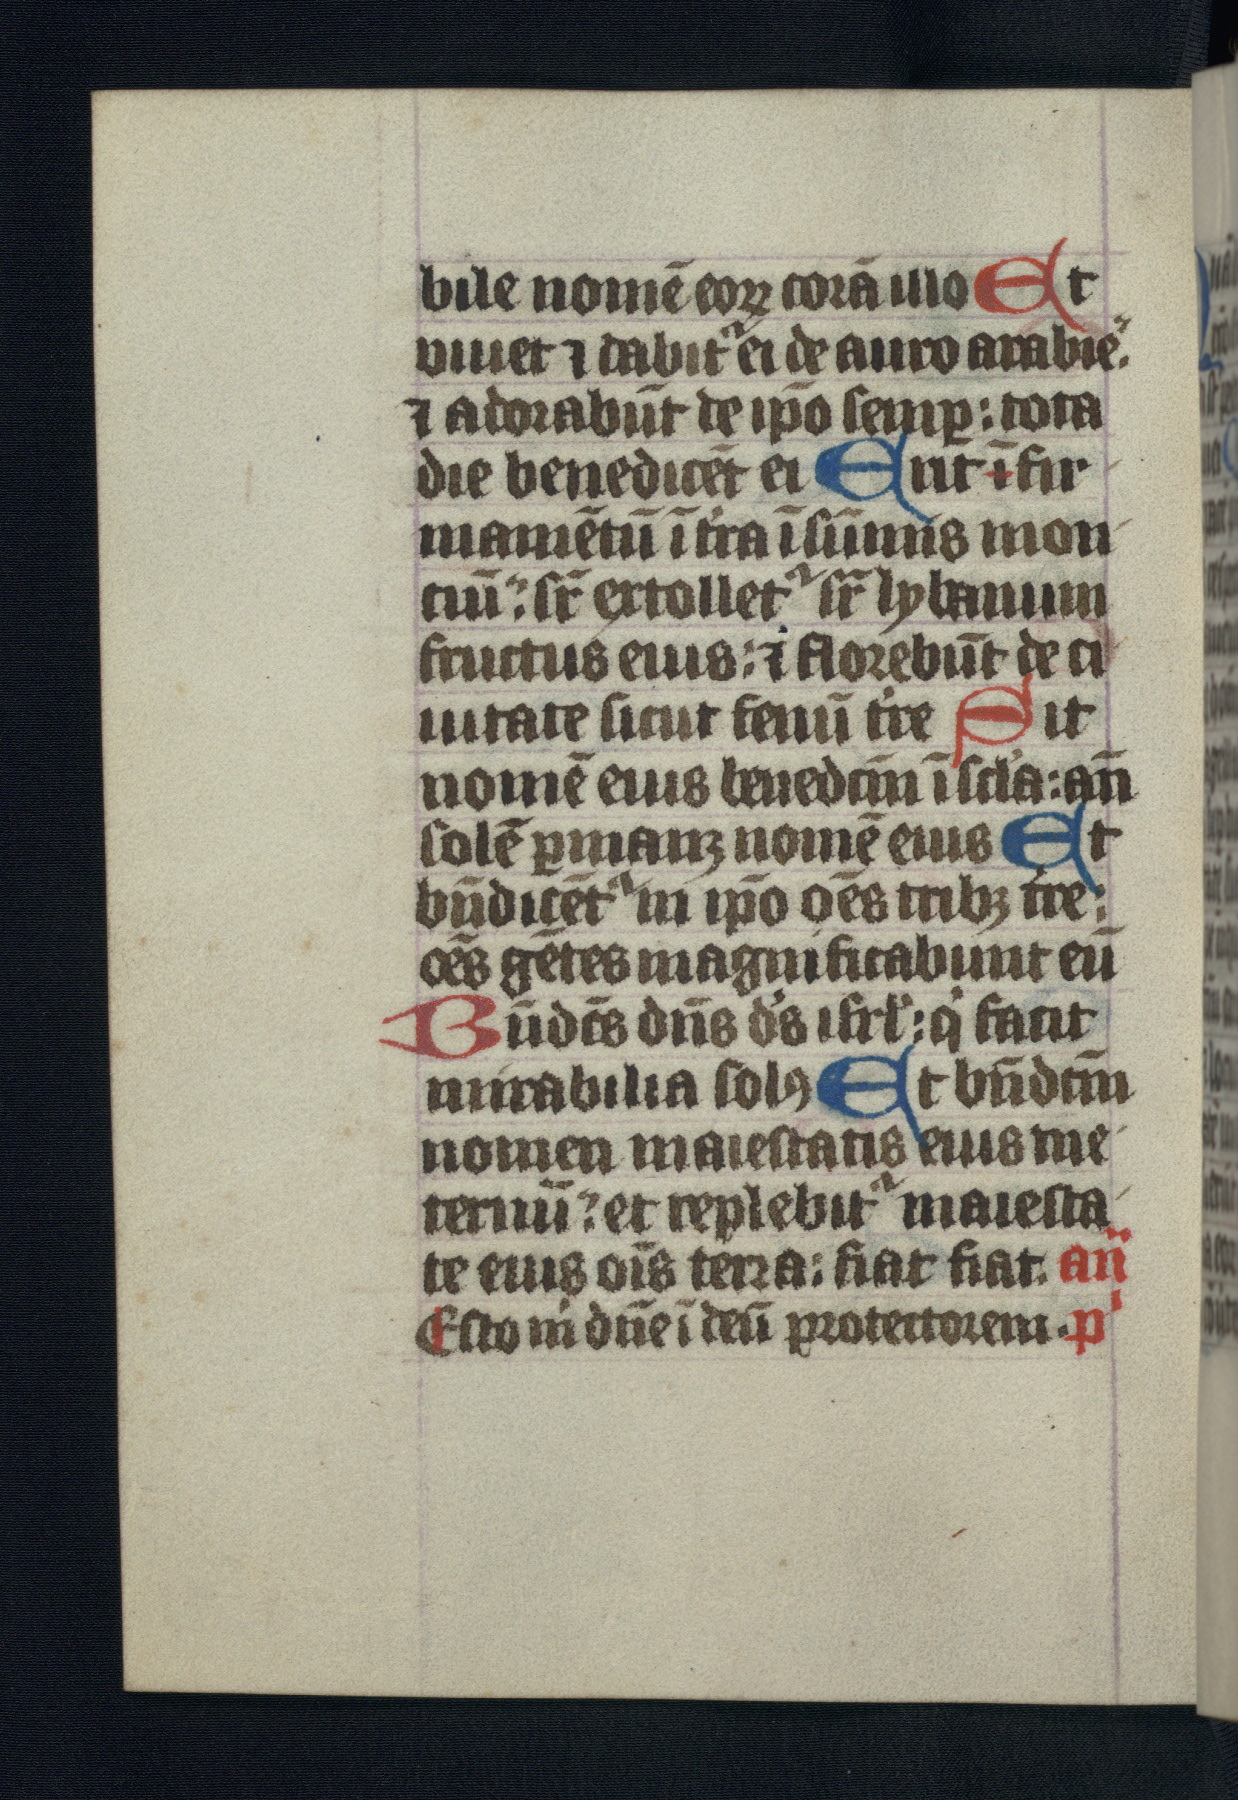 bile nomē eoꝝ corā illo Et
viuet ⁊ dabit᷑ ei de auro arabie.
⁊ adorabūt de ip̄o semꝑ: tota
die benedicēt ei Erit ī fir
mamētū ī tr̄a ī sūmis mon
tiū: sr̄ extollet᷑ sr̄ lybanum
fructus eius: ⁊ florebūt de ci
uitate sicut fenū tr̄e Sit
nomē eius benedc̄m ī sc̄la: an̄
solē ꝑmanꝫ nomē eius Et
bn̄dicēt᷑ in ip̄o oēs tribꝫ tr̄e:
oēs gētes magnificabunt eū
Bn̄dc̄s dn̄s ds̄ isrl̄: qͥ facit
mirabilia solꝰ Et bn̄dc̄m
nomen maiestatis eius ine
ternū: et replebit᷑ maiesta
te eius oīs terra: fiat fiat. an̄
Esto mͥ dn̄e ī deū protectorem. p̄